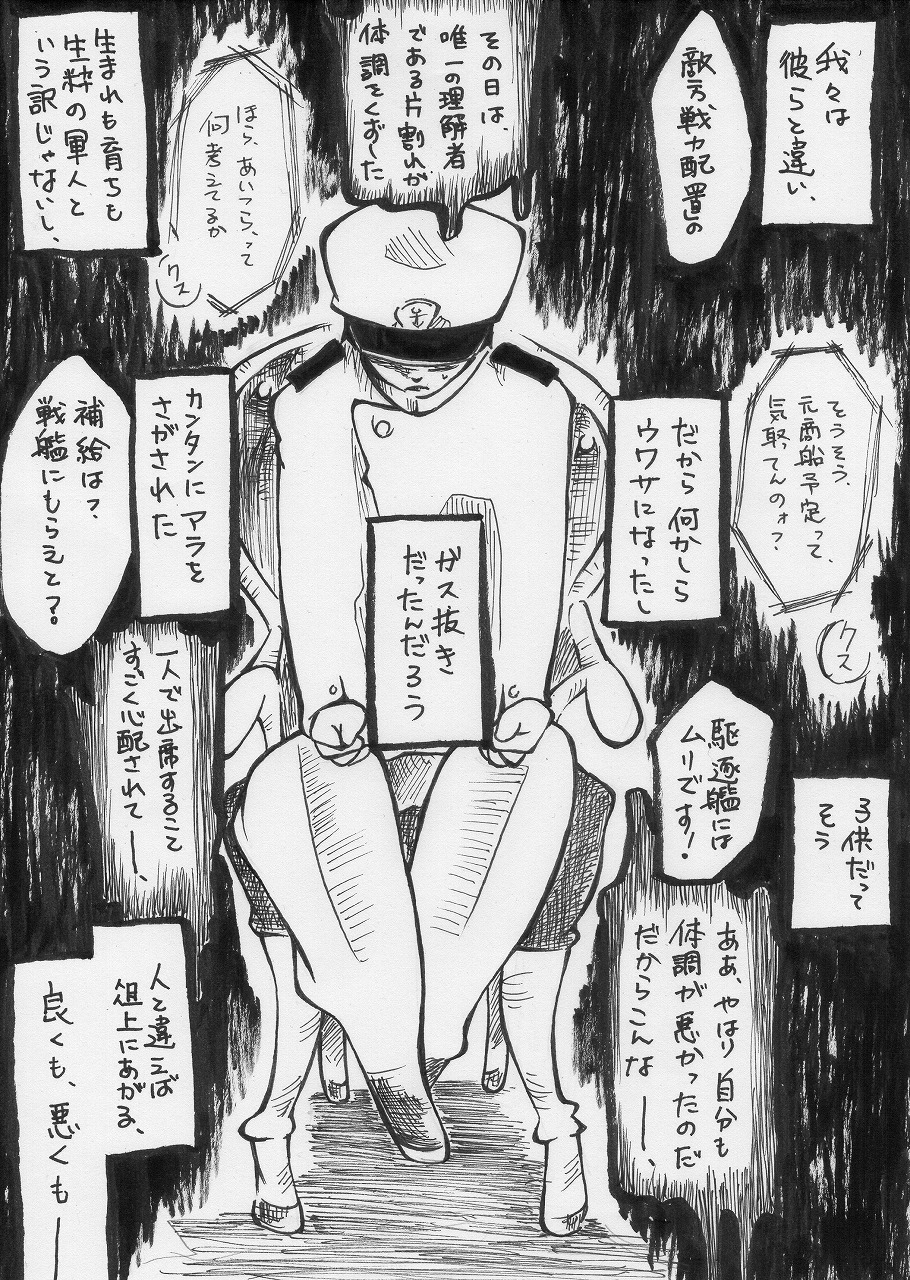 我々は
彼らと違い、
敵方、戦力配置の
その日は、
唯一の理解者
である片割れが
体調をくずした
ほら、あいてら、って
何考えてるか
クス
生まれも育ちも
生粋の軍人と
いう訳じゃないし、
そうそう、
元商船予定って、
気取ってんのォ？
クス
だから何かしら
ウワサになったし
カンタンにアラを
さがされた
補給は？
戦艦にもらえと？
ガス抜き
だったんだろう
駆逐艦には
ムリです！
一人で出席すること
すごく心配されて――、
子供だって
そう
ああ、やはり自分も
体調が悪かったのだ
だからこんな
――、
人と違えば
俎上にあがる、
良くも、悪くも――